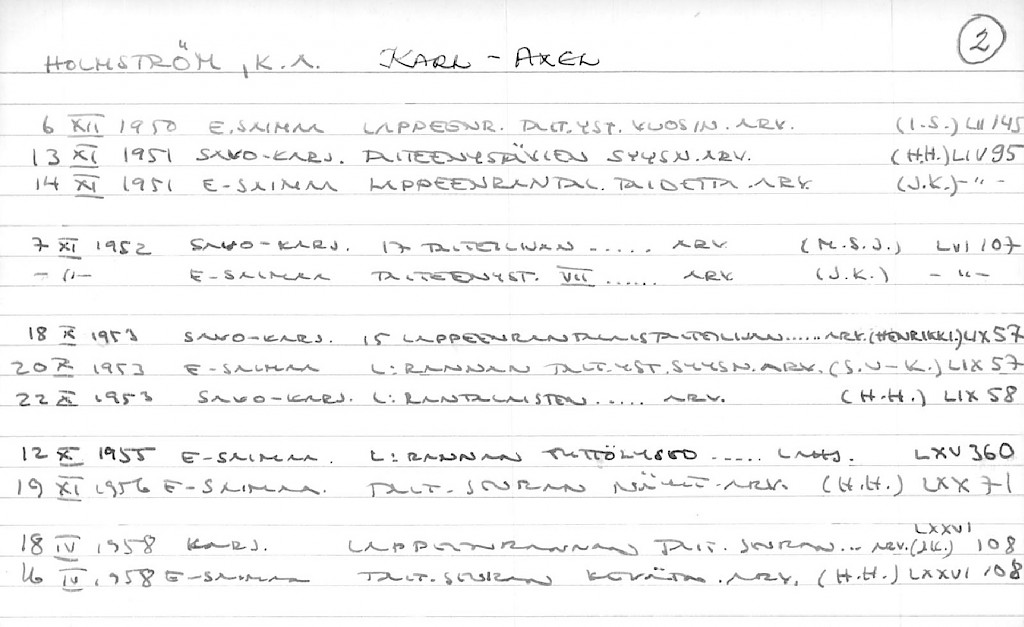 2
HOLMSTRÖM, K.A. KARL-AXEL
6 XII 1950 E.SAIMAA LAPPEENR. TAIT.YST. VUOSIN. ARV. (I.S.) LII 145
13 XI 1951 SAVO-KARJ. TAITEENYSTÄVIEN SYYSN.ARV. (H.H.) LIV 95
14 XI 1951 E-SAIMAA LAPPEENRANTAL. TAIDETTA. ARV. (J.K.) -"-
7 XI 1952 SAVO-KARJ. 17 TAITEILIJAN ..... ARV. (M.S.J.) LVI 107
-"- E-SAIMAA TAITEENYST. VII ...... ARV. (J.K.) -"-
18 X 1953 SAVO-KARJ. 15 LAPPEENRANTALAISTAITEILIJAN ...... ARV. (HENRIKKI.) LIX 57
20 X 1953 E-SAIMAA L:RANNAN TAIT.YST. SYYSN.ARV. (S.V-K.) LIX 57
22 X 1953 SAVO-KARJ. L:RANTALAISTEN ..... ARV. (H.H.) LIX 58
12 X 1955 E-SAIMAA. L:RANNAN TYTTÖLYSEO ..... LAHJ. LXV 360
19 XI 1956 E-SAIMAA. TAIT-SEURAN NÄYTT-ARV. (H.H.) LXX 71
18 IV 1958 KARJ. LAPPEENRANNAN TAIT. SEURAN ... ARV. (J.K.) LXXVI 108
16 IV 1958 E-SAIMAA TAIT-SEURAN KEVÄTN. ARV. (H.H.) LXXVI 108